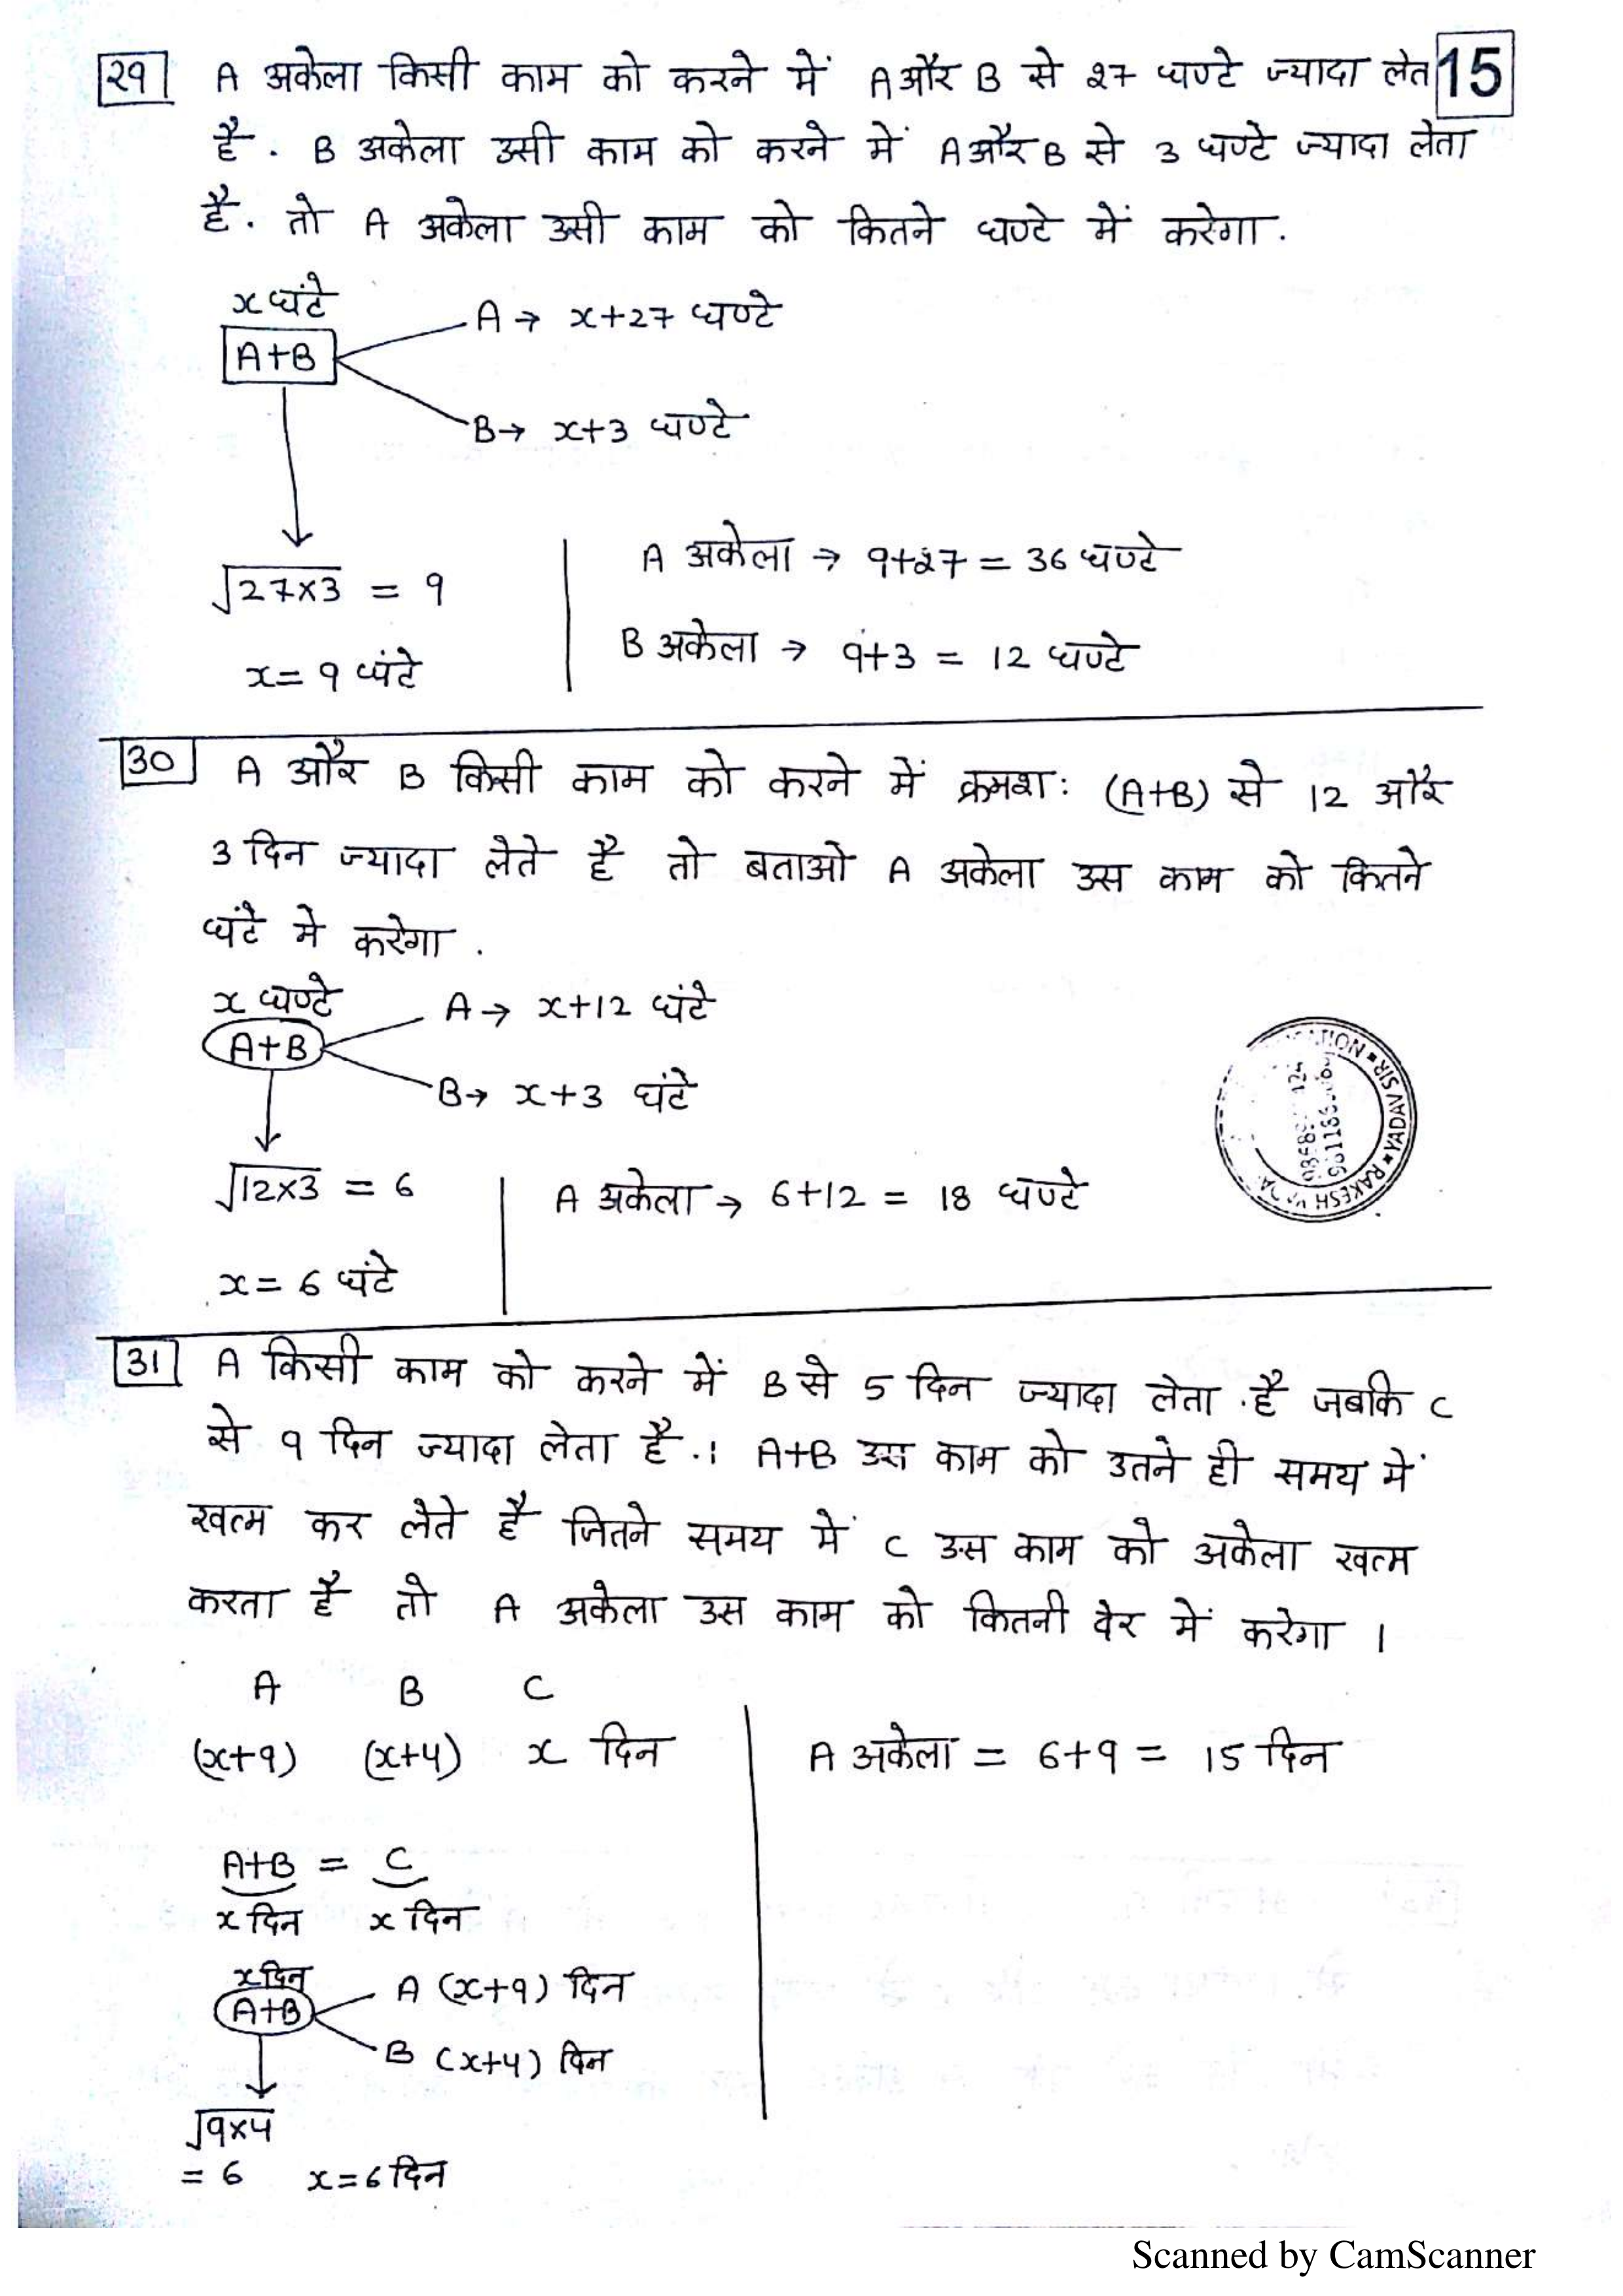 29 A अकेला किसी काम को करने में A और B से 27 घण्टे ज्यादा लेत 15
है. B अकेला उसी काम को करने में A और B से 3 घण्टे ज्यादा लेता
है. तो A अकेला उसी काम को कितने घण्टे में करेगा.
x घंटे
A+B
A → x+27 घण्टे
B → x+3 घण्टे
√27×3 = 9
x = 9 घंटे
A अकेला → 9+27 = 36 घण्टे
B अकेला → 9+3 = 12 घण्टे
30 A और B किसी काम को करने में क्रमश: (A+B) से 12 और
3 दिन ज्यादा लेते है तो बताओ A अकेला उस काम को कितने
घंटे मे करेगा .
x घण्टे
A+B
A → x+12 घंटे
B → x+3 घंटे
√12×3 = 6
x = 6 घंटे
A अकेला → 6+12 = 18 घण्टे
RAKESH YADAV SIR
31 A किसी काम को करने में B से 5 दिन ज्यादा लेता है जबकि C
से 9 दिन ज्यादा लेता है.। A+B उस काम को उतने ही समय में
खत्म कर लेते है जितने समय में C उस काम को अकेला खत्म
करता है तो A अकेला उस काम को कितनी देर में करेगा ।
A B C
(x+9) (x+4) x दिन
A+B = C
x दिन x दिन
x दिन
A+B
A (x+9) दिन
B (x+4) दिन
√9×4
= 6 x = 6 दिन
A अकेला = 6+9 = 15 दिन
Scanned by CamScanner